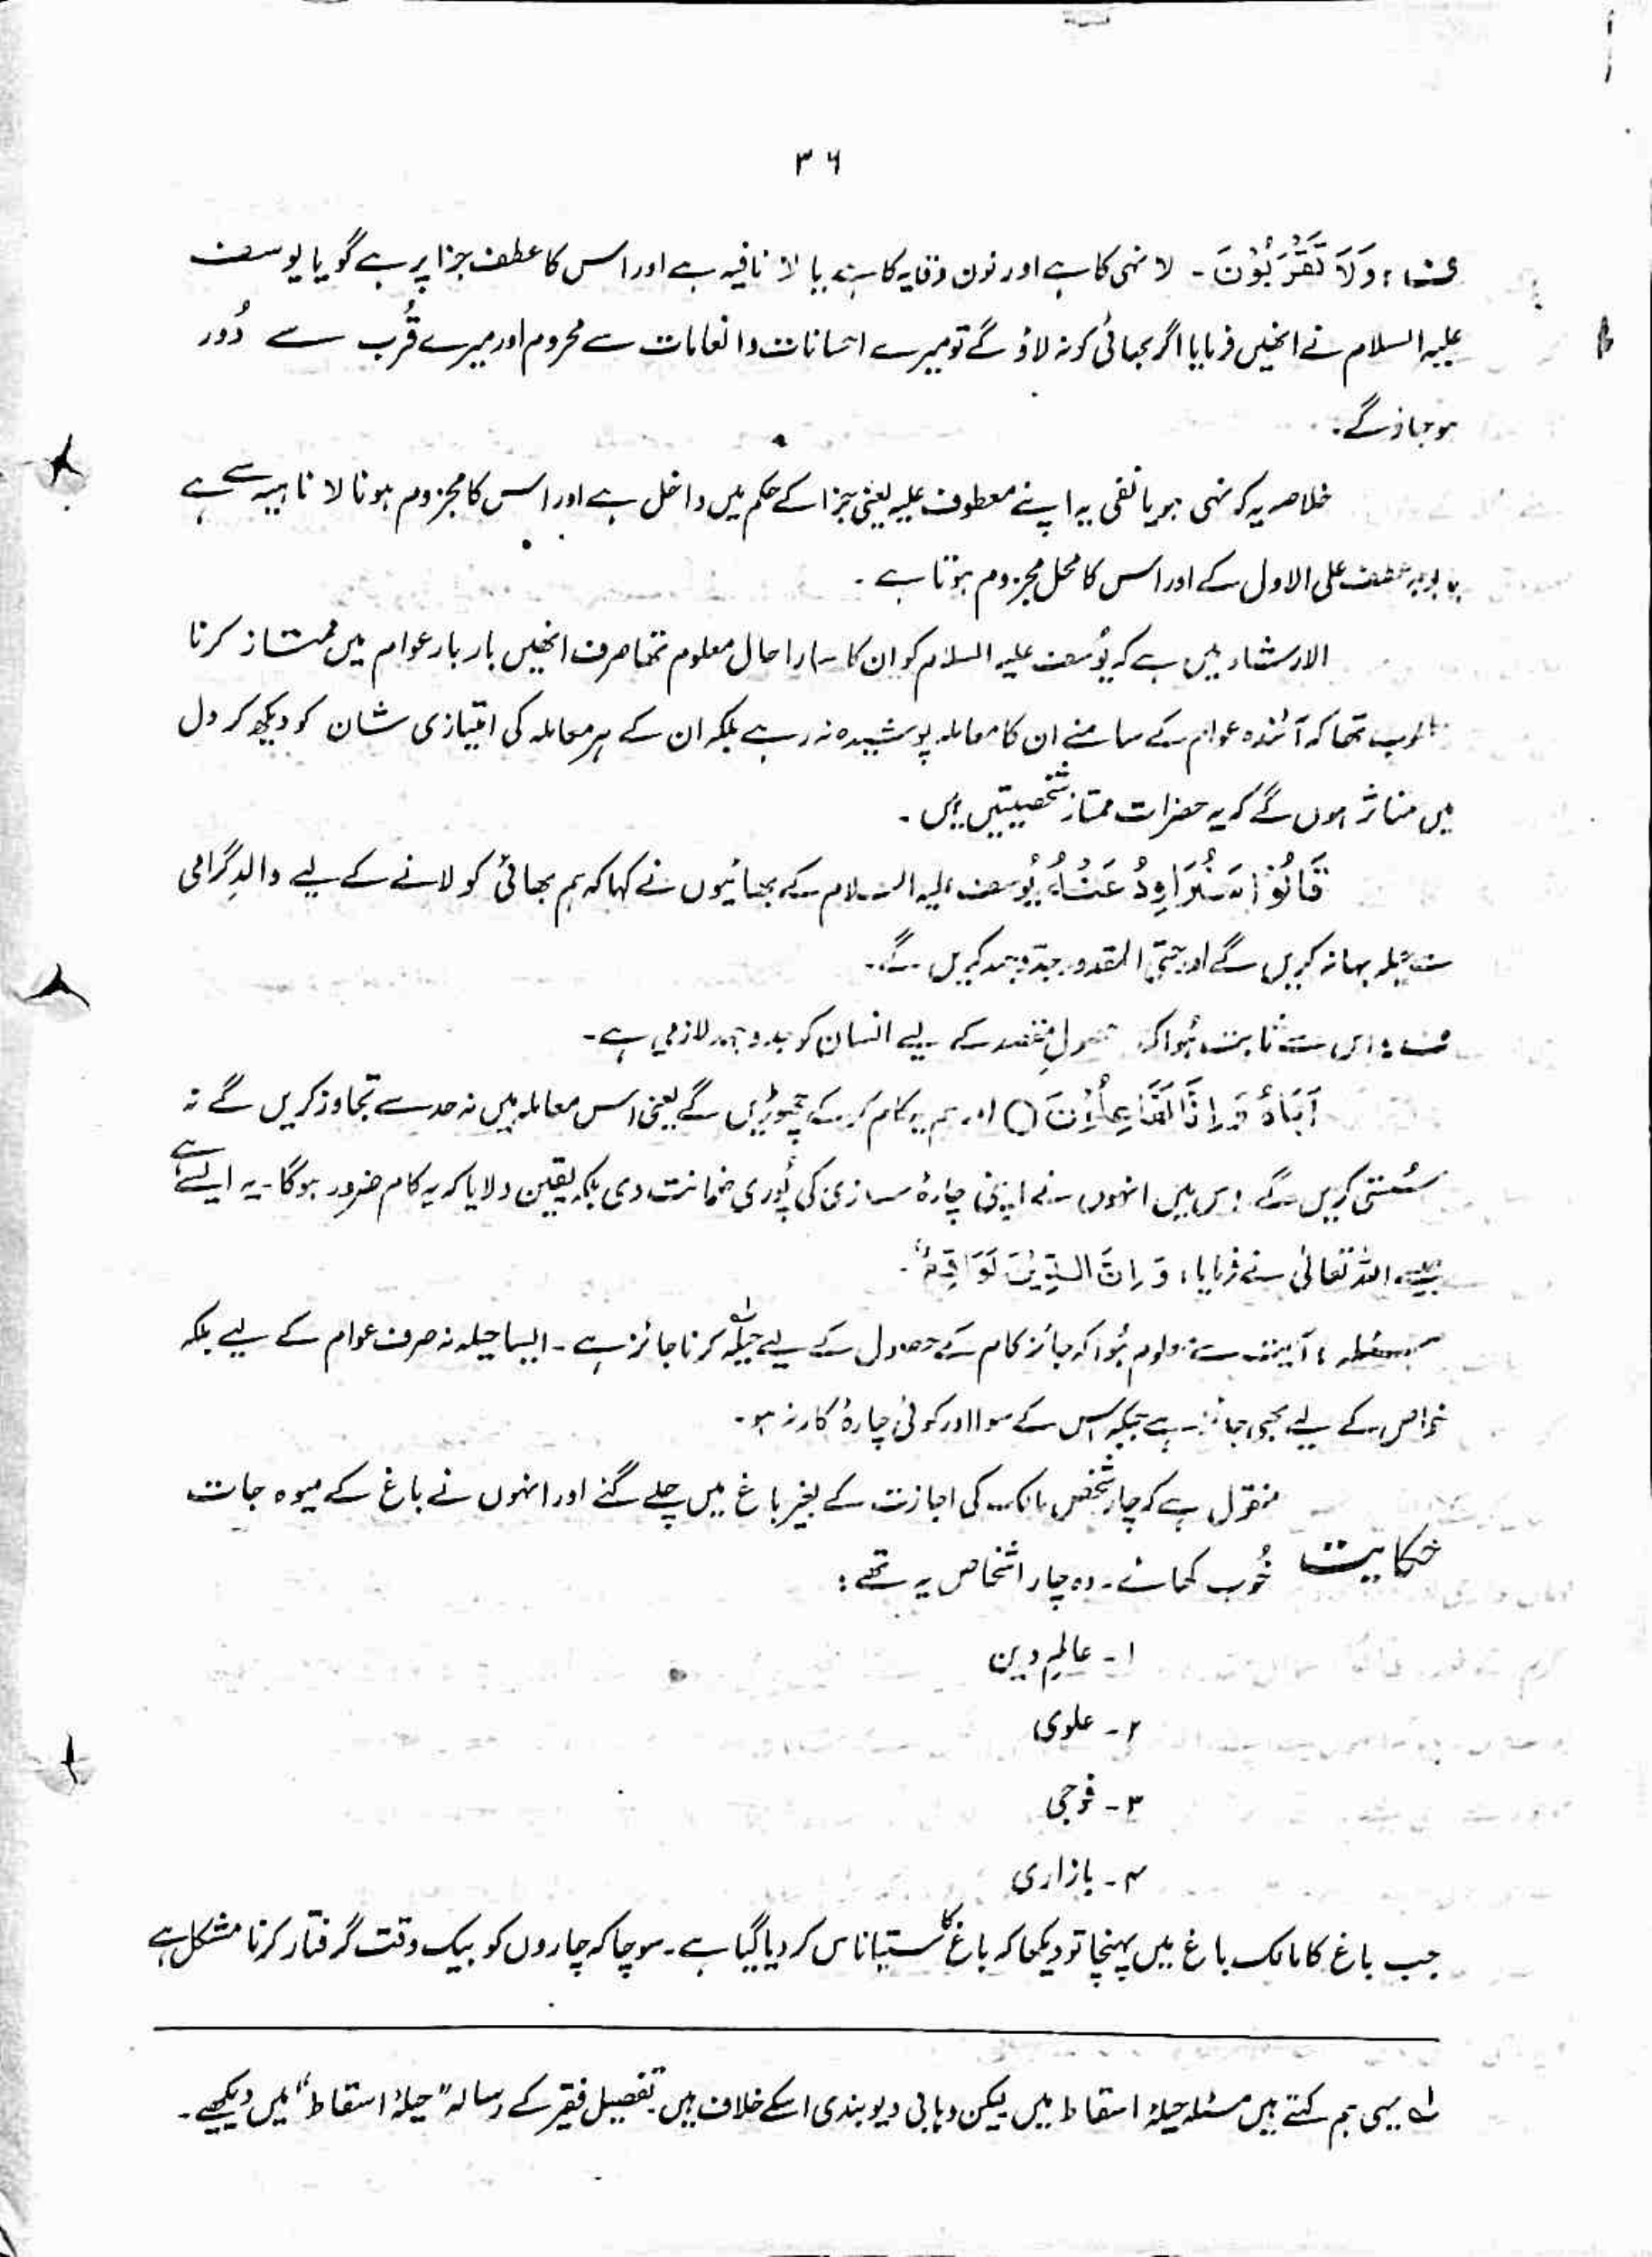 ۳۶
ف : وَلَا تَقْرَبُوْنَ - لا نہی کا ہے اور نون وقایہ کا ہے یا لا نافیہ ہے اور اس کا عطف جزا پر ہے گویا یوسف
علیہ السلام نے انھیں فرمایا اگر بھائی کو نہ لاؤ گے تو میرے احسانات و انعامات سے محروم اور میرے قُرب سے دُور
ہو جاؤ گے۔
خلاصہ یہ کہ نہی ہو یا نفی یہ اپنے معطوف علیہ یعنی جزا کے حکم میں داخل ہے اور اس کا مجزوم ہونا لا ناہیہ سے ہے
یا بوجہ عطف علی الاول کے اور اس کا محل مجزوم ہوتا ہے ۔
الارشاد میں ہے کہ یُوسف علیہ السلام کو ان کا سارا حال معلوم تھا صرف انھیں بار بار عوام میں ممتاز کرنا
مطلوب تھا کہ آئندہ عوام کے سامنے ان کا معاملہ پوشیدہ نہ رہے بلکہ ان کے ہر معاملہ کی امتیازی شان کو دیکھ کر دل
میں متاثر ہوں گے کہ یہ حضرات ممتاز شخصیتیں ہیں ۔
قَالُوْا سَنُرَاوِدُ عَنْهُ یُوسف علیہ السلام کے بھائیوں نے کہا کہ ہم بھائی کو لانے کے لیے والدِ گرامی
سے حیلہ بہانہ کریں گے اور حتی المقدور جدّوجہد کریں گے۔
ف : اس سے ثابت ہُوا کہ حصولِ مقصد کے لیے انسان کو جدوجہد لازمی ہے۔
اَبَاهُ وَ اِنَّا لَفَاعِلُوْنَ ○ اور ہم یہ کام کر کے چھوڑیں گے یعنی اس معاملہ میں نہ حد سے تجاوز کریں گے نہ
سُستی کریں گے اس میں انہوں نے اپنی چارہ سازی کی پُوری ضمانت دی بلکہ یقین دلایا کہ یہ کام ضرور ہوگا۔ یہ ایسے ہے
جیسے اللہ تعالیٰ نے فرمایا : وَ اِنَّ الدِّيْنَ لَوَاقِعٌ ۔
مسئلہ : آیت سے معلوم ہُوا کہ جائز کام کے حصول کے لیے حیلہ لے کرنا جائز ہے ۔ ایسا حیلہ نہ صرف عوام کے لیے بلکہ
خواص کے لیے بھی جائز ہے جبکہ اس کے سوا اور کوئی چارۂ کار نہ ہو۔
منقول ہے کہ چار شخص مالک کی اجازت کے بغیر باغ میں چلے گئے اور انہوں نے باغ کے میوہ جات
حکایت خُوب کھائے۔ وہ چار اشخاص یہ تھے :
۱ - عالمِ دین
۲ - علوی
۳ - فوجی
۴ - بازاری
جب باغ کا مالک باغ میں پہنچا تو دیکھا کہ باغ کا ستیاناس کر دیا گیا ہے۔ سوچا کہ چاروں کو بیک وقت گرفتار کرنا مشکل ہے
لے یہی ہم کہتے ہیں مسئلہ حیلۂ اسقاط میں لیکن وہابی دیوبندی اسکے خلاف ہیں تفصیل فقیر کے رسالہ "حیلۂ اسقاط" میں دیکھیے۔